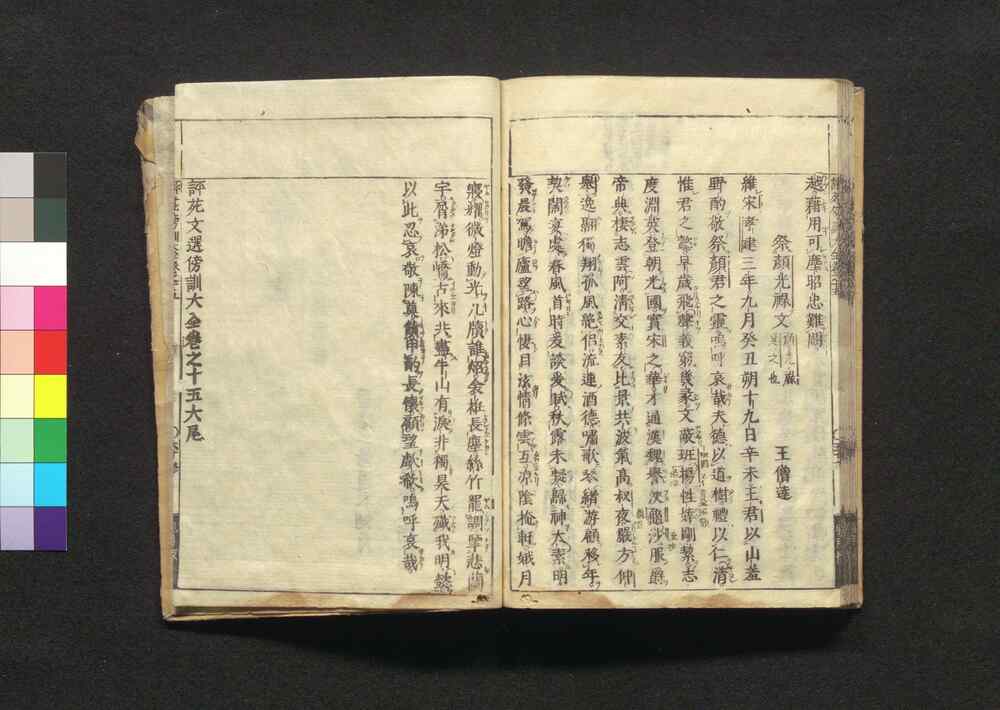 越藉用可塵昭忠難闕
祭顔光祿文
王僧達
維宋孝建三年九月癸丑朔十九日辛未王君以山羞
野酌敬祭顔君之靈嗚呼哀哉夫德以道樹禮以仁清
惟君之懿早歳飛聲義窮幾彖文蔽班揚性婞剛潔志
度淵英登朝光國實宋之華才通漢魏譽浹龜沙服爵
帝典棲志雲阿清交素友比景共波氣高叔夜嚴方仲
擧逸翮獨翔孤風絶侶流連酒德嘯歌琴緒游顧移年
契闊宴處春風首時爰談爰賦秋露未凝歸神太素明
發晨駕瞻廬望路心悽目泫情條雲互凉陰掩軒娥月
寢耀微燈動光几牘誰炤衾衽長塵絲竹罷調擥悲蘭
宇屑涕松嶠古來共盡牛山有淚非獨昊天殲我明懿
以此忍哀敬陳奠饋申酌長懷顧望歔欷嗚呼哀哉
評苑文選傍訓大全卷之十五大尾